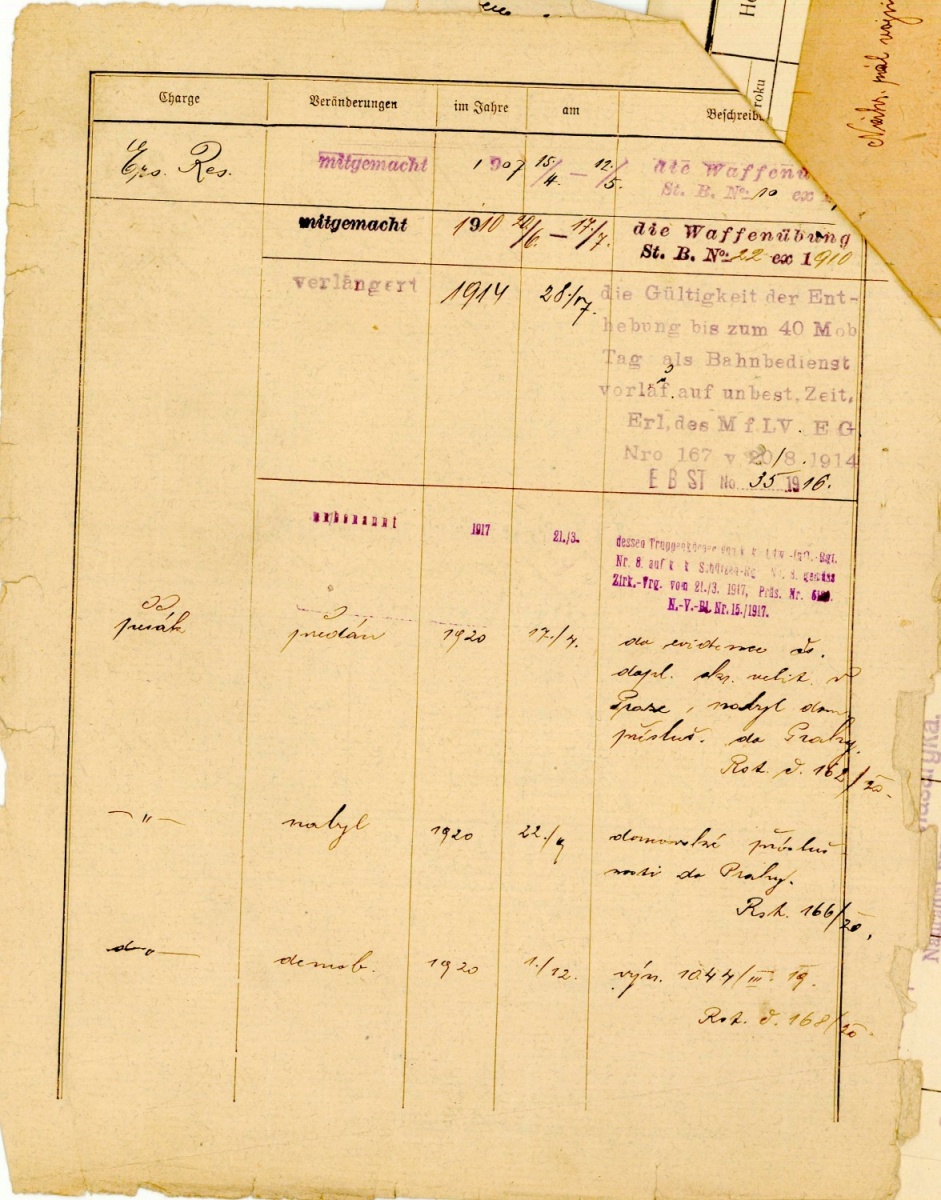 Charge Veränderungen im Jahre am Beschreib
Ers. Res. mitgemacht 1907 15/4. — 12/5. die Waffenü
St. B. No. 10 ex 1
mitgemacht 1910 20/6. — 17./7. die Waffenübung
St. B. No. 22 ex 1910
verlängert 1914 28./7. die Gültigkeit der Ent-
hebung bis zum 40 Mob
Tag als Bahnbedienst
vorläf. auf unbest. Zeit,
Erl. des M f. LV. E G
Nro 167 v 20/8. 1914
E B ST No. 35 1916.
umbenannt 1917 21./3. dessen Truppenkörper von k. k. Ldw.-Inft.-Rgt.
Nr. 8. auf k. k. Schützen-Rg. Nr. 8. gemäss
Zirk.-Vrg. vom 21./3. 1917, Präs. Nr.
N.-V.-Bl. Nr. 15./1917.
pěšák předán 1920 17./4. do evidence čs.
dopl. okr. velit. v
Praze, nabyl dom.
přísluš. do Prahy.
Rot. č. 162/20.
— " — nabyl 1920 22./9 domovské přísluš-
nosti do Prahy.
Rot. 166/20.
demob. 1920 1./12. výn. 1044/III. 19.
Rot. č. 168/20
roku